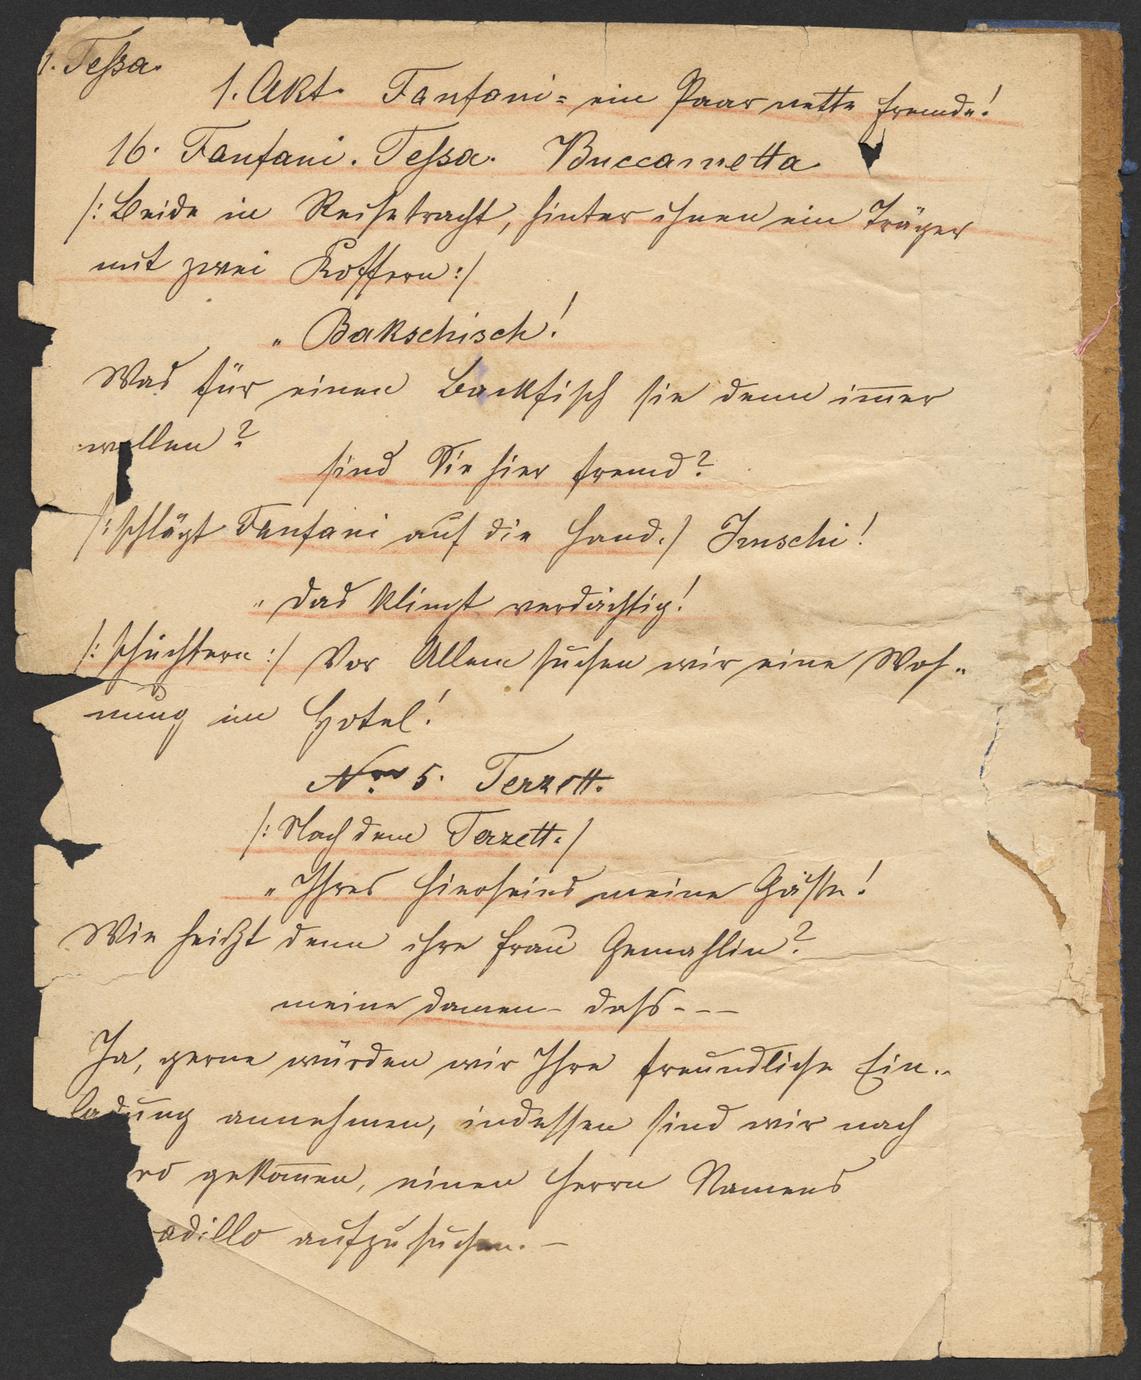 1. Tessa.
1. Akt. Fanfani = ein Paar nette Fremde!
16. Fanfani. Tessa. Buccametta
/: Beide in Reisetracht, hinter ihnen ein Träger
mit zwei Koffern :/
" Bakschisch!
Was für einen Backfisch sie denn immer
wollen?
sind Sie hier fremd?
/: schlägt Fanfani auf die Hand. / Imschi!
" das klingt verdächtig!
/: schüchtern :/ Vor Allem suchen wir eine Woh-
nung im Hotel!
Nro 5. Terzett.
/: Nach dem Terzett. /
" Ihres Hierseins meine Gäste!
Wie heißt denn ihre Frau Gemahlin?
meine Damen - dass - - -
Ja, gerne würden wir Ihre freundliche Ein-
ladung annehmen, indessen sind wir nach
ro gekommen, einen Herrn Namens
adillo aufzusuchen. -